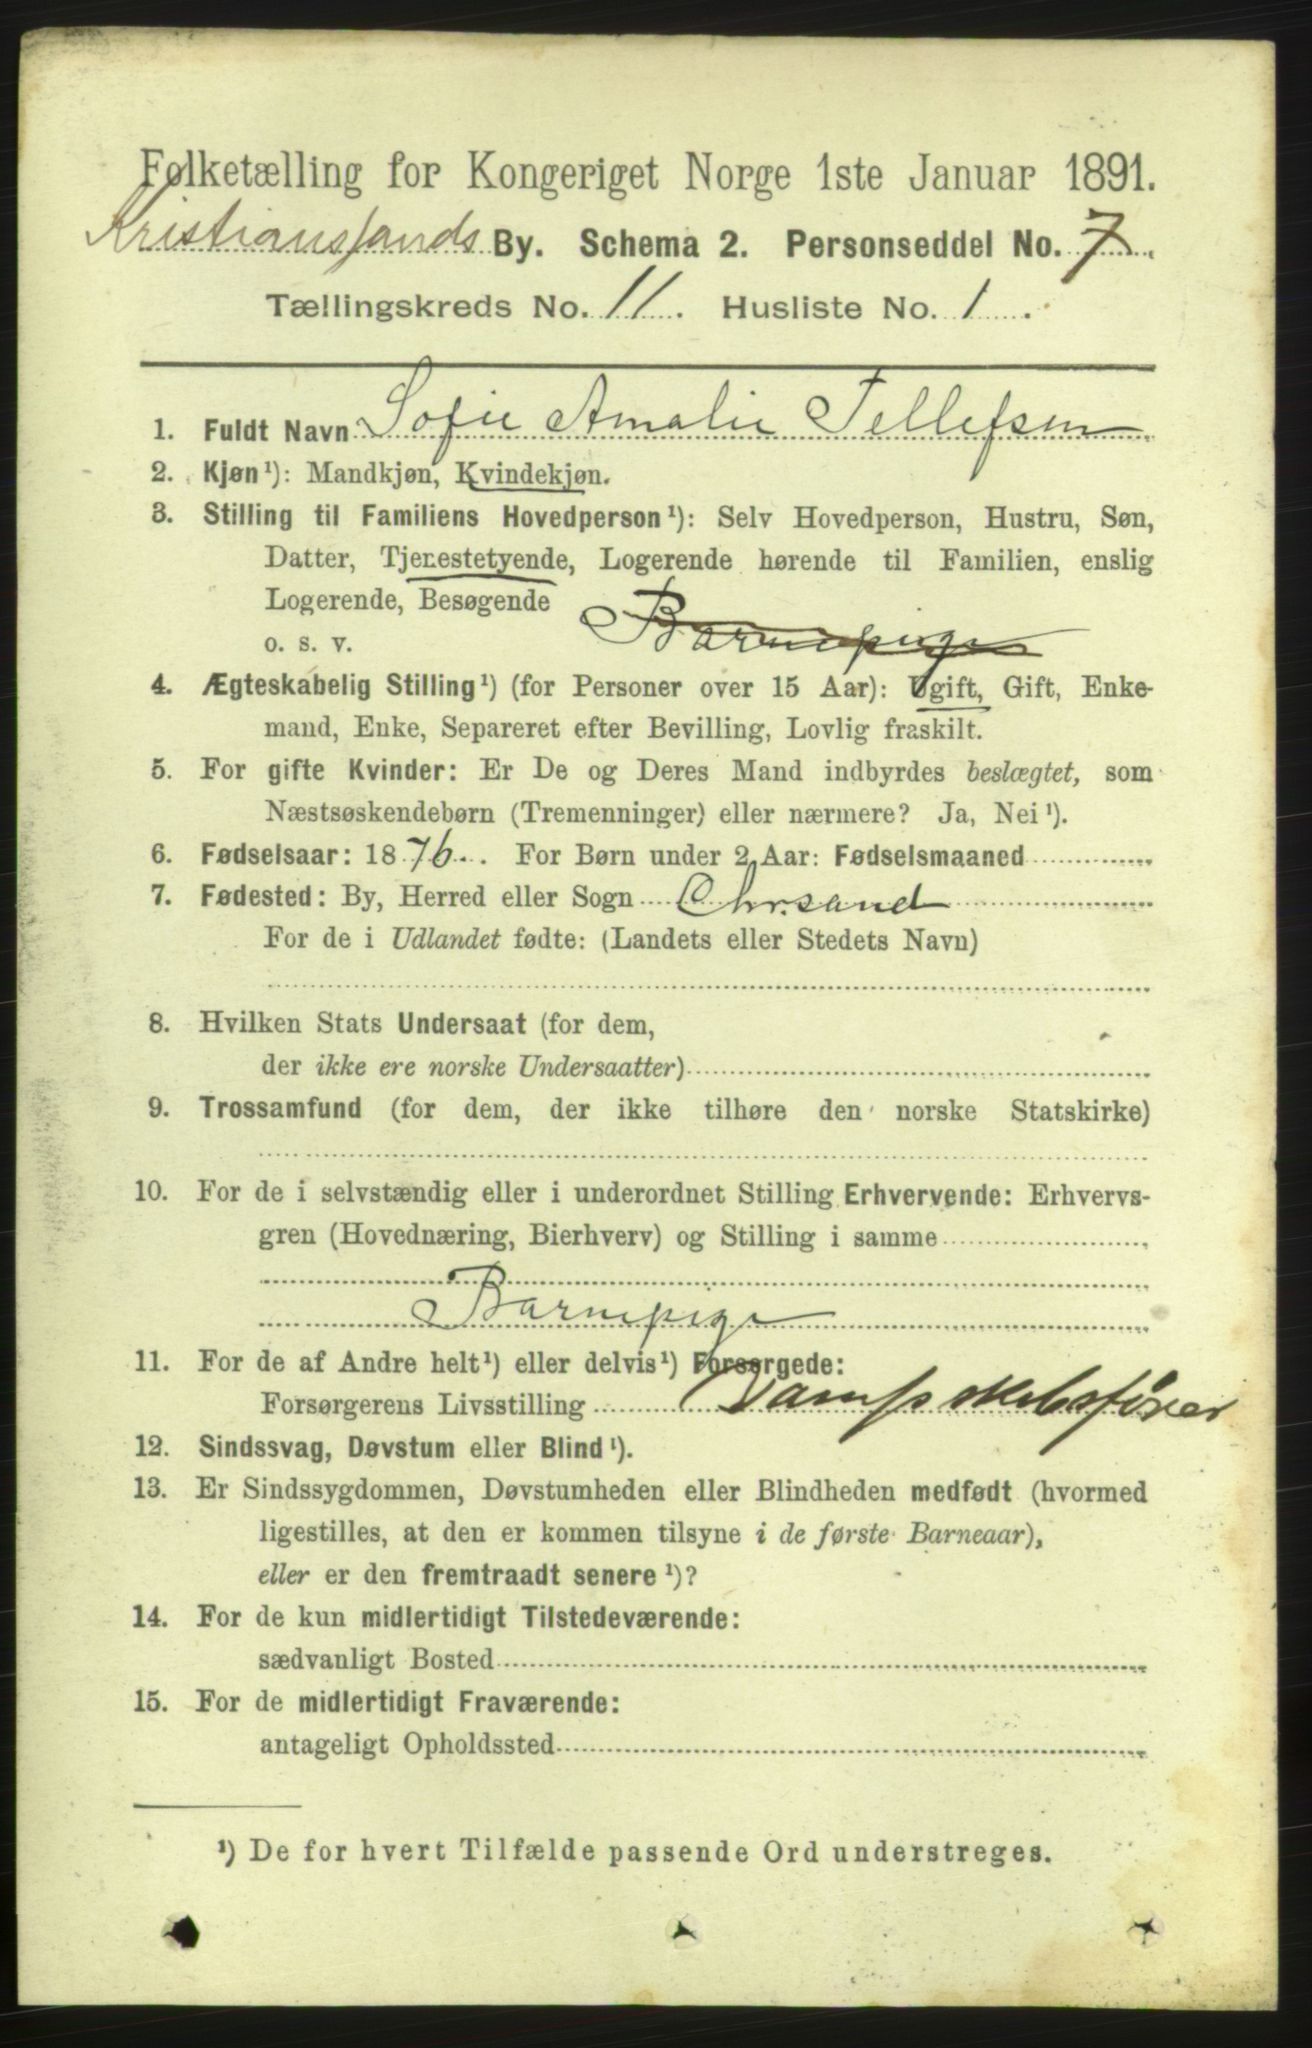 Folketælling for Kongeriget Norge 1ste Januar 1891.
Kristianssands By. Schema 2. Personseddel No. 7.
Tællingskreds No. 11. Husliste No. 1.
1. Fuldt Navn Sofie Amalie Tellefsen
2. Kjøn¹): Mandkjøn, Kvindekjøn.
3. Stilling til Familiens Hovedperson¹): Selv Hovedperson, Hustru, Søn,
Datter, Tjenestetyende, Logerende hørende til Familien, enslig
Logerende, Besøgende
o. s. v. Barnepige
4. Ægteskabelig Stilling¹) (for Personer over 15 Aar): Ugift, Gift, Enke-
mand, Enke, Separeret efter Bevilling, Lovlig fraskilt.
5. For gifte Kvinder: Er De og Deres Mand indbyrdes beslægtet, som
Næstsøskendebørn (Tremenninger) eller nærmere? Ja, Nei¹).
6. Fødselsaar: 1876. For Børn under 2 Aar: Fødselsmaaned
7. Fødested: By, Herred eller Sogn Chr.sand
For de i Udlandet fødte: (Landets eller Stedets Navn)
8. Hvilken Stats Undersaat (for dem,
der ikke ere norske Undersaatter)
9. Trossamfund (for dem, der ikke tilhøre den norske Statskirke)
10. For de i selvstændig eller i underordnet Stilling Erhvervende: Erhvervs-
gren (Hovednæring, Bierhverv) og Stilling i samme
Barnepige
11. For de af Andre helt¹) eller delvis¹) Forsørgede:
Forsørgerens Livsstilling Dampskibsfører
12. Sindssvag, Døvstum eller Blind¹).
13. Er Sindssygdommen, Døvstumheden eller Blindheden medfødt (hvormed
ligestilles, at den er kommen tilsyne i de første Barneaar),
eller er den fremtraadt senere¹)?
14. For de kun midlertidigt Tilstedeværende:
sædvanligt Bosted
15. For de midlertidigt Fraværende:
antageligt Opholdssted
¹) De for hvert Tilfælde passende Ord understreges.